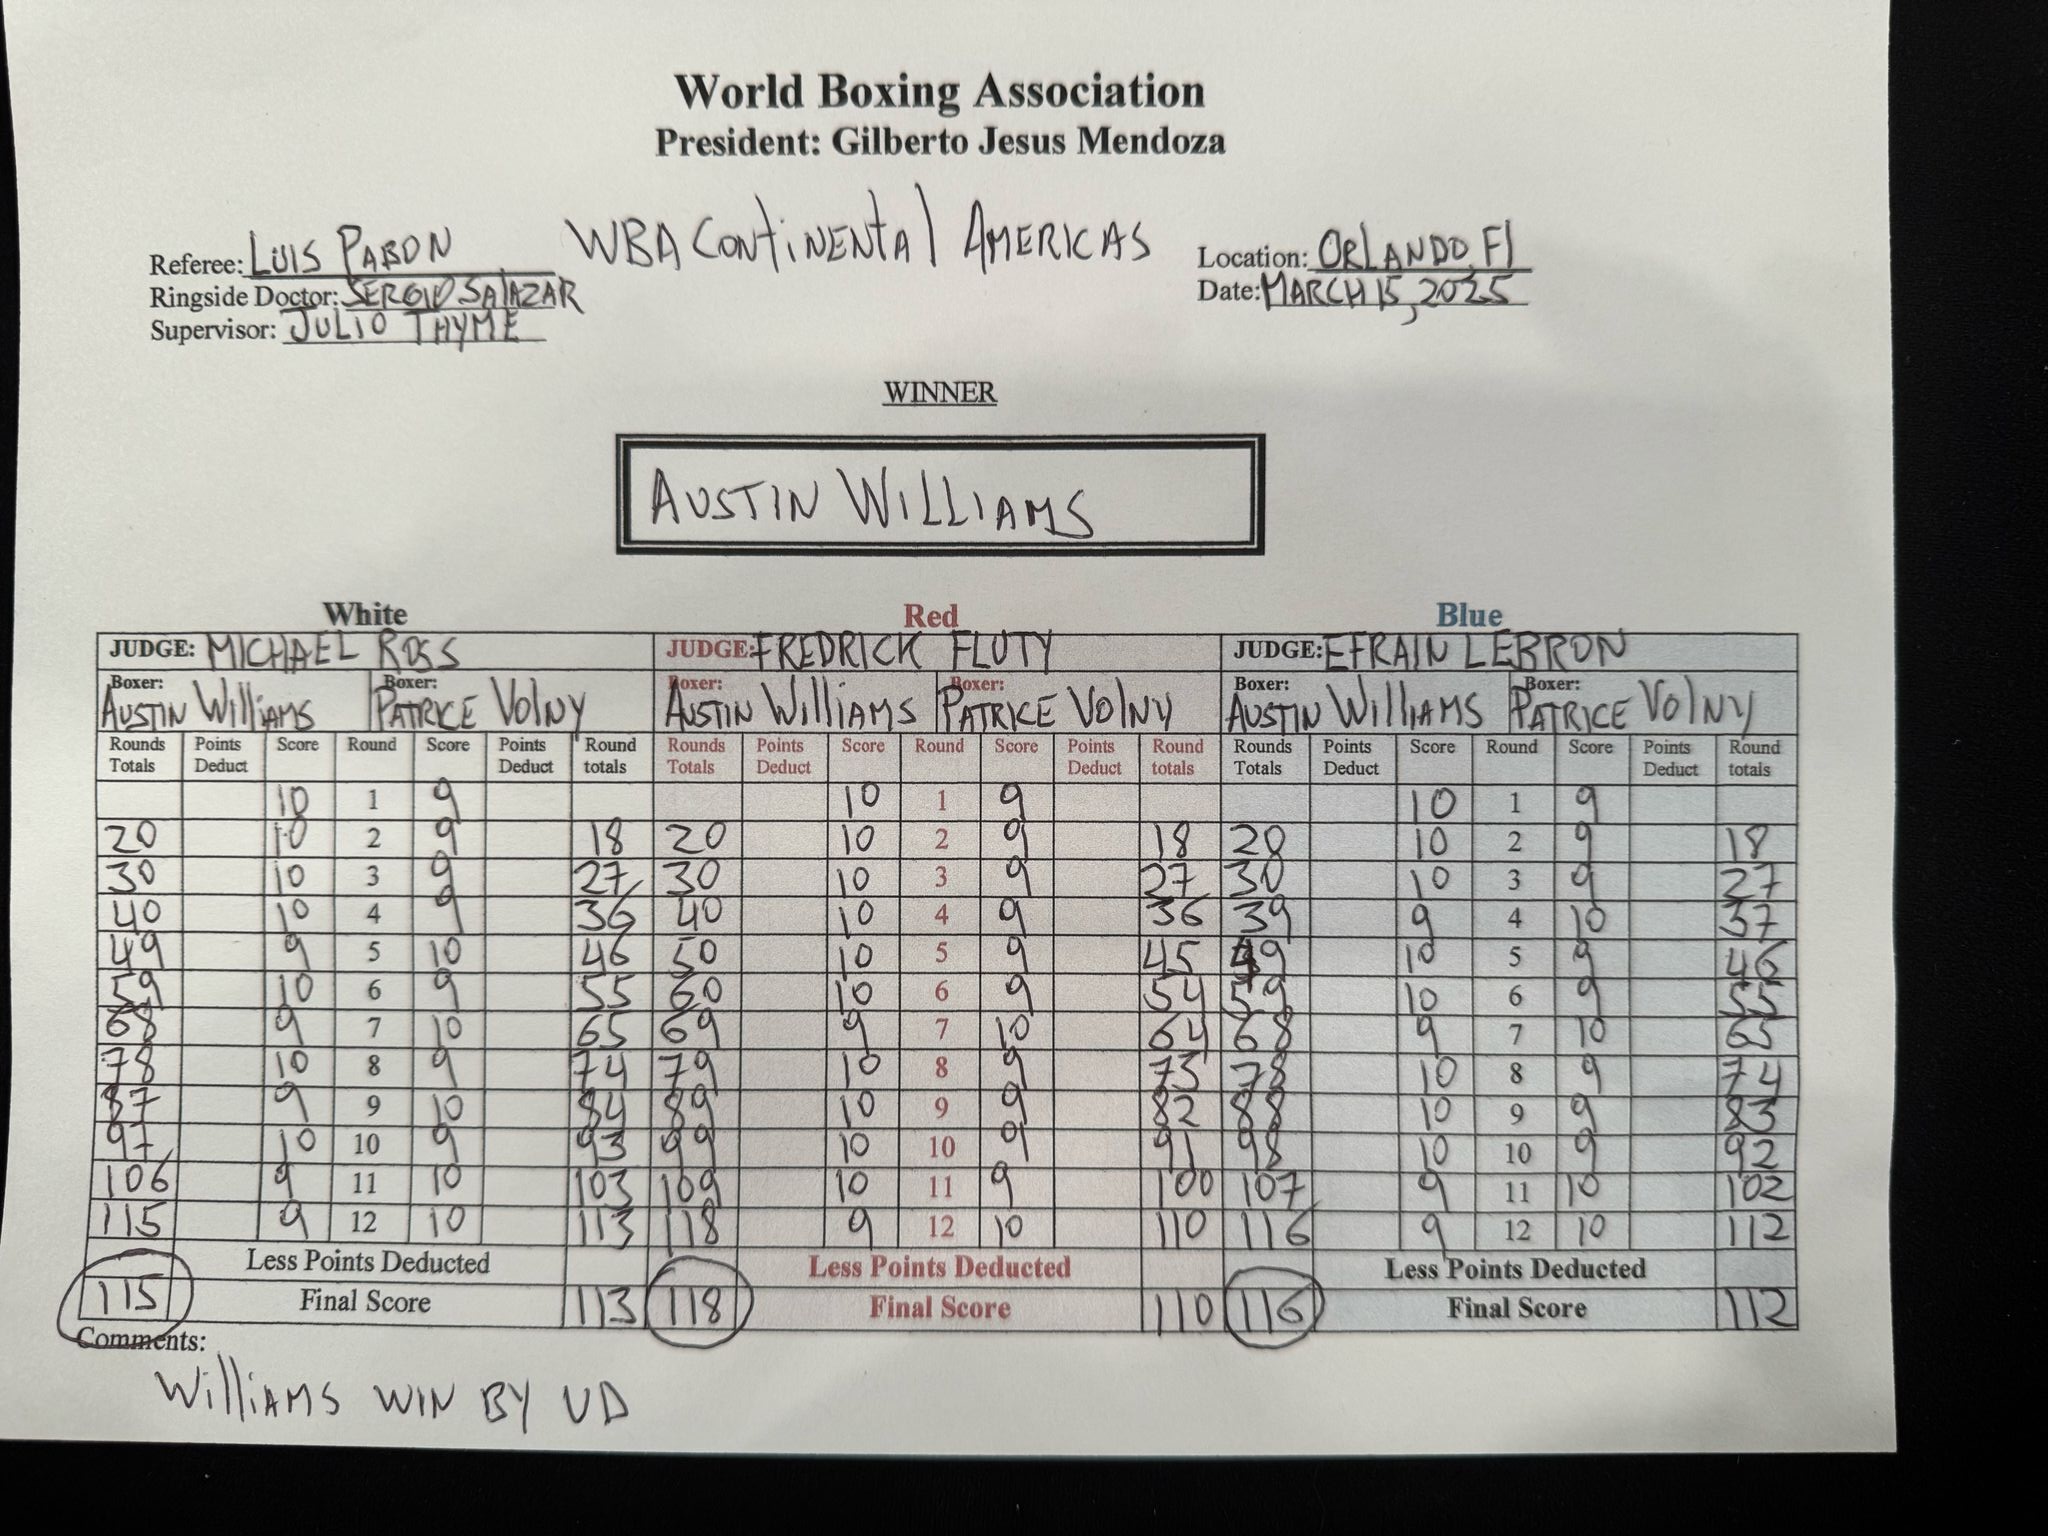 World Boxing Association
President: Gilberto Jesus Mendoza
WBA Continental Americas
Referee: Luis Pabon
Ringside Doctor: Sergio Salazar
Supervisor: Julio Thyme
Location: Orlando, Fl
Date: March 15, 2025
WINNER
Austin Williams
White Red Blue
JUDGE: Michael Ross JUDGE: Fredrick Fluty JUDGE: Efrain Lebron
Boxer: Boxer: Boxer: Boxer: Boxer: Boxer:
Austin Williams Patrice Volny Austin Williams Patrice Volny Austin Williams Patrice Volny
Rounds Points Score Round Score Points Round Rounds Points Score Round Score Points Round Rounds Points Score Round Score Points Round
Totals Deduct Deduct totals Totals Deduct Deduct totals Totals Deduct Deduct totals
10 1 9 10 1 9 10 1 9
20 10 2 9 18 20 10 2 9 18 20 10 2 9 18
30 10 3 9 27 30 10 3 9 27 30 10 3 9 27
40 10 4 9 36 40 10 4 9 36 39 9 4 10 37
49 9 5 10 46 50 10 5 9 45 49 10 5 9 46
59 10 6 9 55 60 10 6 9 54 59 10 6 9 55
68 9 7 10 65 69 9 7 10 64 68 9 7 10 65
78 10 8 9 74 79 10 8 9 73 78 10 8 9 74
87 9 9 10 84 89 10 9 9 82 88 10 9 9 83
97 10 10 9 93 99 10 10 9 91 98 10 10 9 92
106 9 11 10 103 109 10 11 9 100 107 9 11 10 102
115 9 12 10 113 118 9 12 10 110 116 9 12 10 112
Less Points Deducted Less Points Deducted Less Points Deducted
115 Final Score 113 118 Final Score 110 116 Final Score 112
Comments:
Williams win by UD